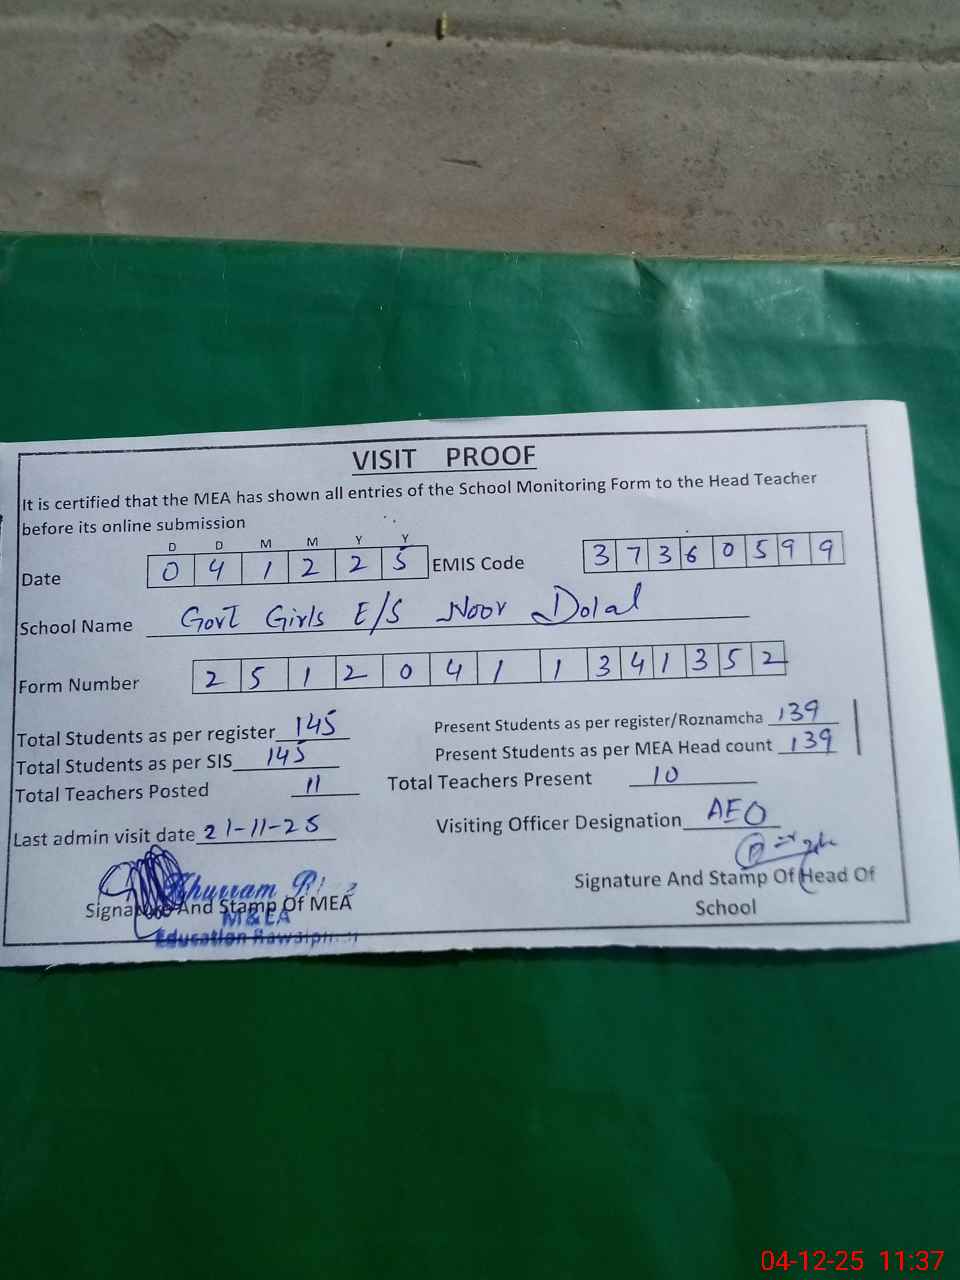 VISIT PROOF
It is certified that the MEA has shown all entries of the School Monitoring Form to the Head Teacher
before its online submission
D D M M Y Y
Date 0 4 1 2 2 5 EMIS Code 3 7 3 6 0 5 9 9
School Name Govt Girls E/S Noor Dolal
Form Number 2 5 1 2 0 4 1 1 3 4 1 3 5 2
Total Students as per register 145 Present Students as per register/Roznamcha 139
Total Students as per SIS 145 Present Students as per MEA Head count 139
Total Teachers Posted 11 Total Teachers Present 10
Last admin visit date 21-11-25 Visiting Officer Designation AEO
Khurram
Signature And Stamp Of MEA Signature And Stamp Of Head Of
School
M&EA
Education Rawalpindi
04-12-25 11:37